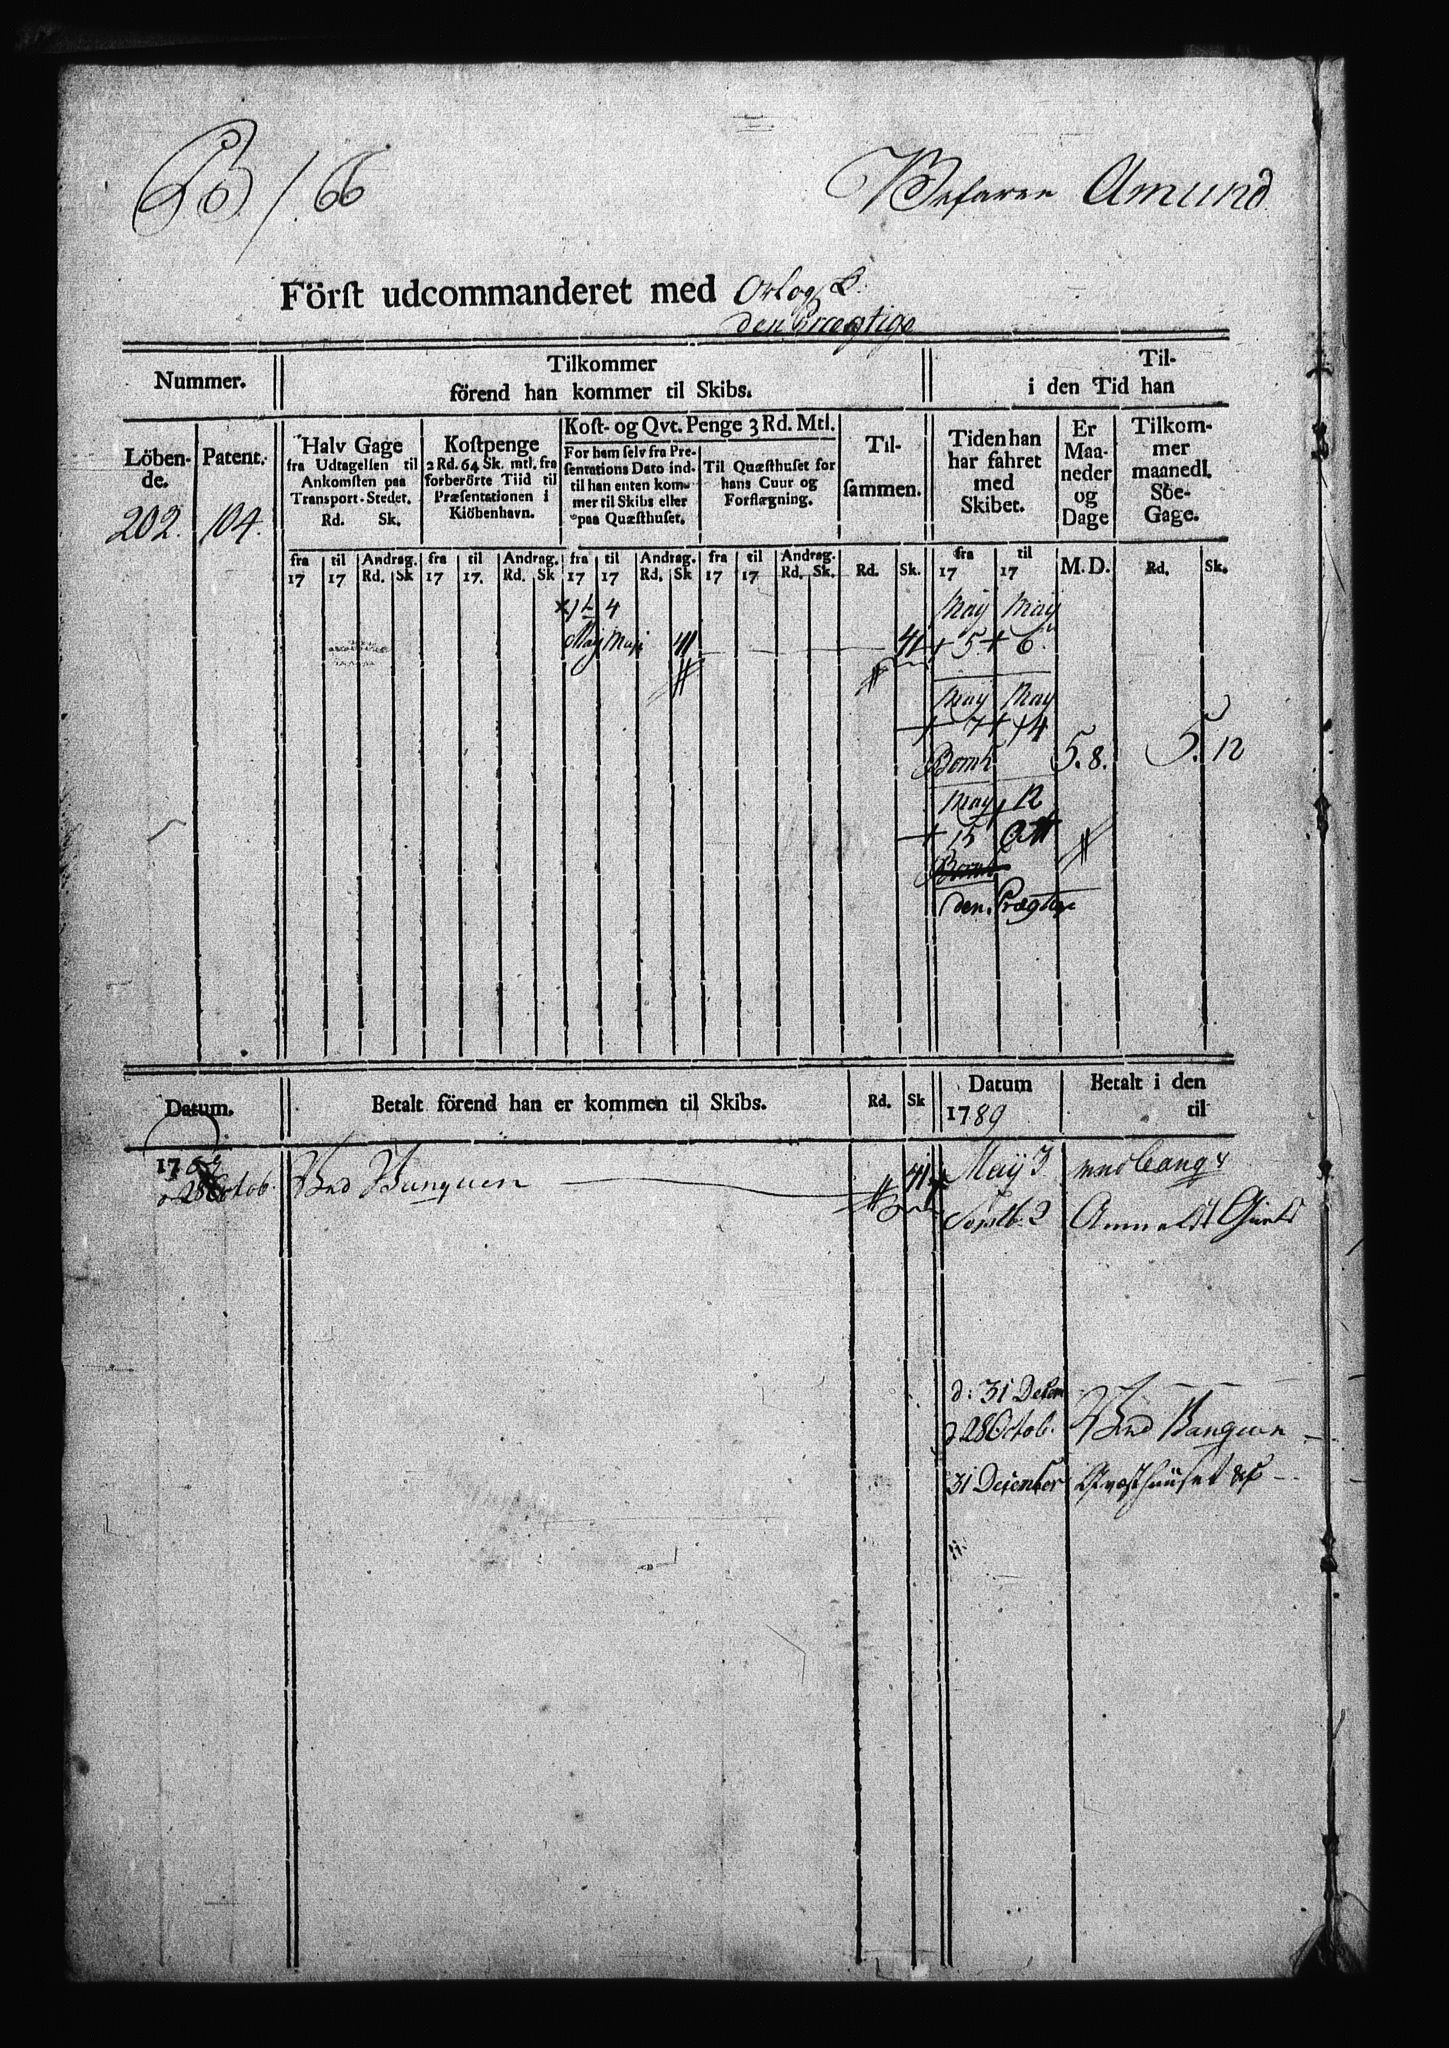 166
Befaren Amund
Först udcommanderet med Orlog S.
den Prægtige
Nummer.
Tilkommer
förend han kommer til Skibs.
Til-
i den Tid han
Löben-
de.
Patent.
Halv Gage
fra Udtagelsen til
Ankomsten paa
Transport-Stedet.
Rd. Sk.
Kostpenge
2 Rd. 64 Sk. mtl. fra
forberörte Tiid til
Præsentationen i
Kiöbenhavn.
Kost- og Qvt. Penge 3 Rd. Mtl.
For ham selv fra Præ-
sentations Dato ind-
til han enten kom-
mer til Skibs eller
paa Quæsthuset.
Til Quæsthuset for
hans Cuur og
Forflægning.
Til-
sammen.
Tiden han
har fahret
med
Skibet.
Er
Maa-
neder
og
Dage
Tilkom-
mer
maanedl.
Söe-
Gage.
202. 104.
fra til Andrag. fra til Andrag. fra til Andrag. fra til Andrag. fra til
17 17 Rd. Sk 17 17. Rd. Sk 17 17 Rd. Sk 17 17 Rd. Sk. Rd. Sk. 17 17 M. D. Rd. Sk.
4 May May
May May 41 41 5 6
May May
7 14
Bomb 5. 8. 5. 12
May 12
15 Oct
Bomb
den Prægtige
Datum.
Betalt förend han er kommen til Skibs.
Rd. Sk
Datum
1789
Betalt i den
til
17
28 Octob. Ved Banquen 41
May 3
Septb. 2
d: 31 Decem
d 28 Octob. Ved Banquen
31 December Qvæsthuuset